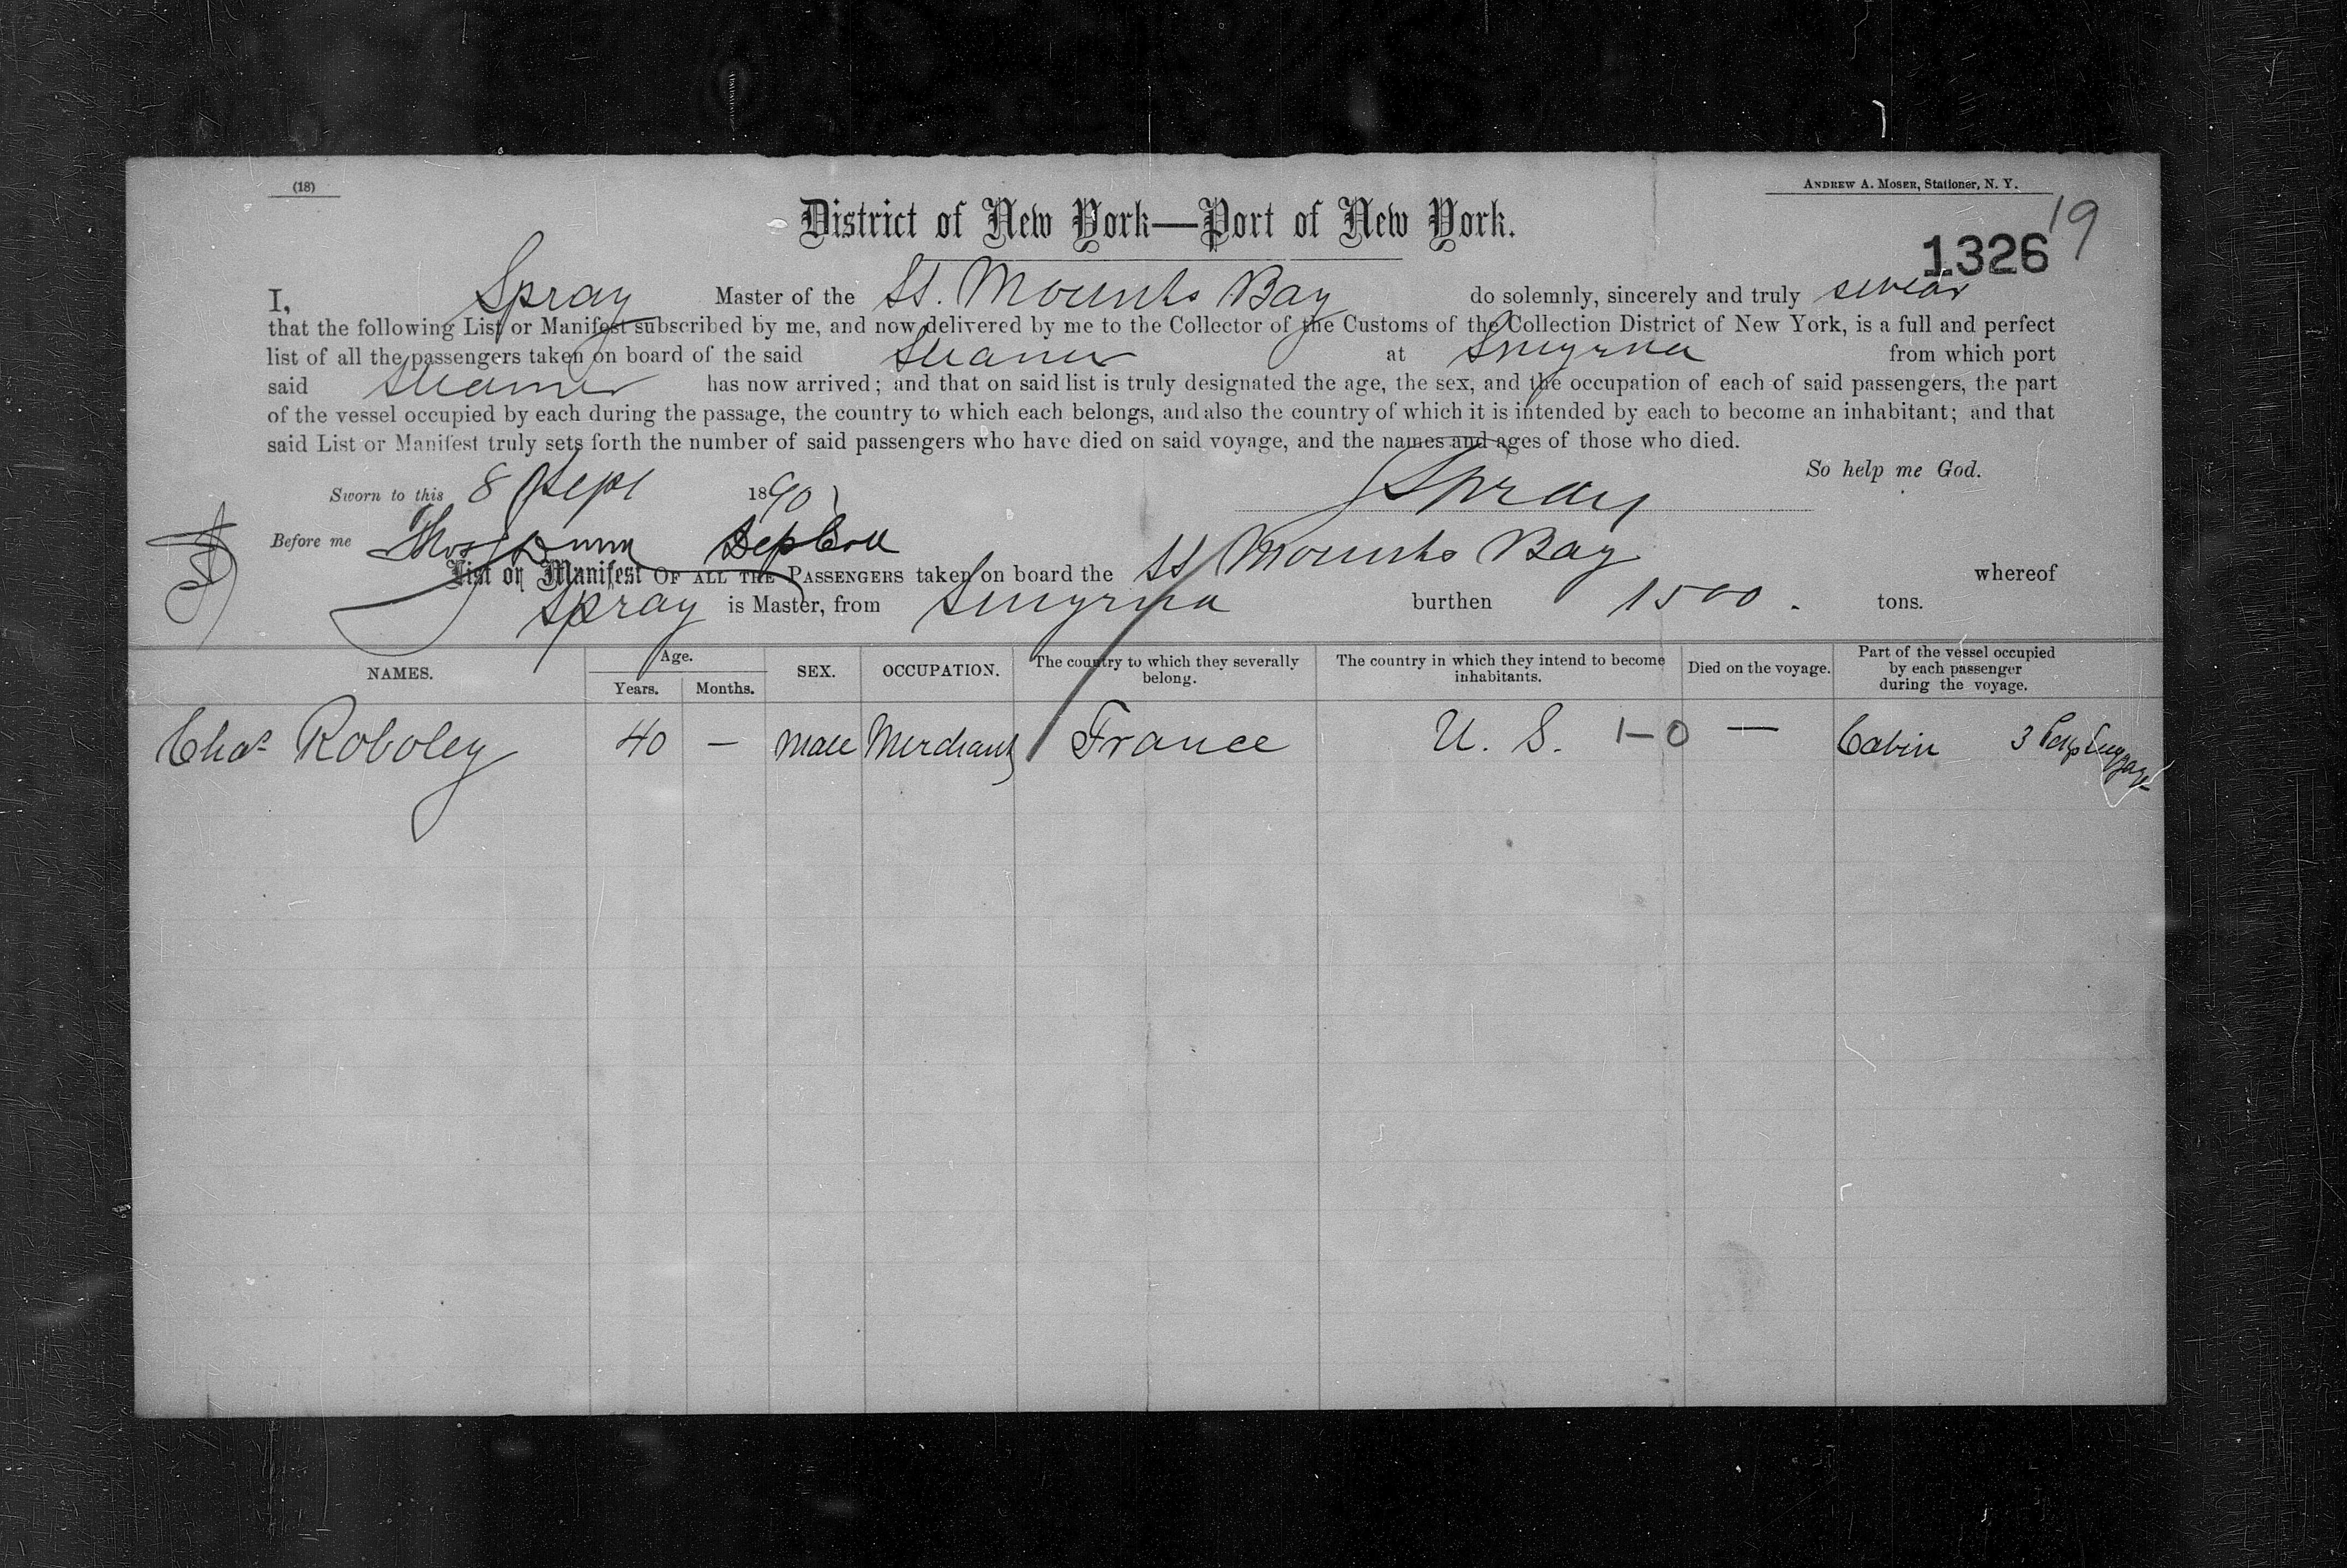 (18)
ANDREW A. MOSER, Stationer, N. Y.
19
District of New York—Port of New York.
1326
I, Spray Master of the SS. Mounts Bay do solemnly, sincerely and truly swear
that the following List or Manifest subscribed by me, and now delivered by me to the Collector of the Customs of the Collection District of New York, is a full and perfect
list of all the passengers taken on board of the said Steamer at Smyrna from which port
said steamer has now arrived; and that on said list is truly designated the age, the sex, and the occupation of each of said passengers, the part
of the vessel occupied by each during the passage, the country to which each belongs, and also the country of which it is intended by each to become an inhabitant; and that
said List or Manifest truly sets forth the number of said passengers who have died on said voyage, and the names and ages of those who died.
So help me God.
Sworn to this 8 Sept 1890
Spray
Before me Thos Dunn Dep Coll
List or Manifest OF ALL THE PASSENGERS taken on board the SS Mounts Bay whereof
Spray is Master, from Smyrna burthen 1500. tons.
NAMES. Age. Years. Months. SEX. OCCUPATION. The country to which they severally belong. The country in which they intend to become inhabitants. Died on the voyage. Part of the vessel occupied by each passenger during the voyage.
Chas Roboley 40 — Male Merchant France U. S. 1-0 — Cabin 3 luggage